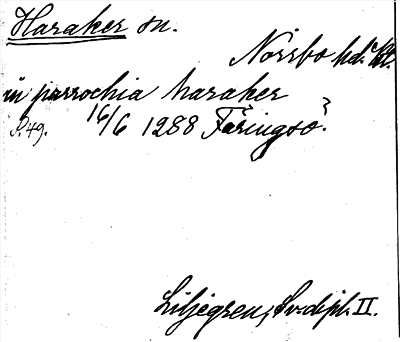 Haraker sn.
Norrbo hd.
in parrochia haraker
S. 49. 16/6 1288 Färingsö?
Liljegren, Sv. dipl. II.